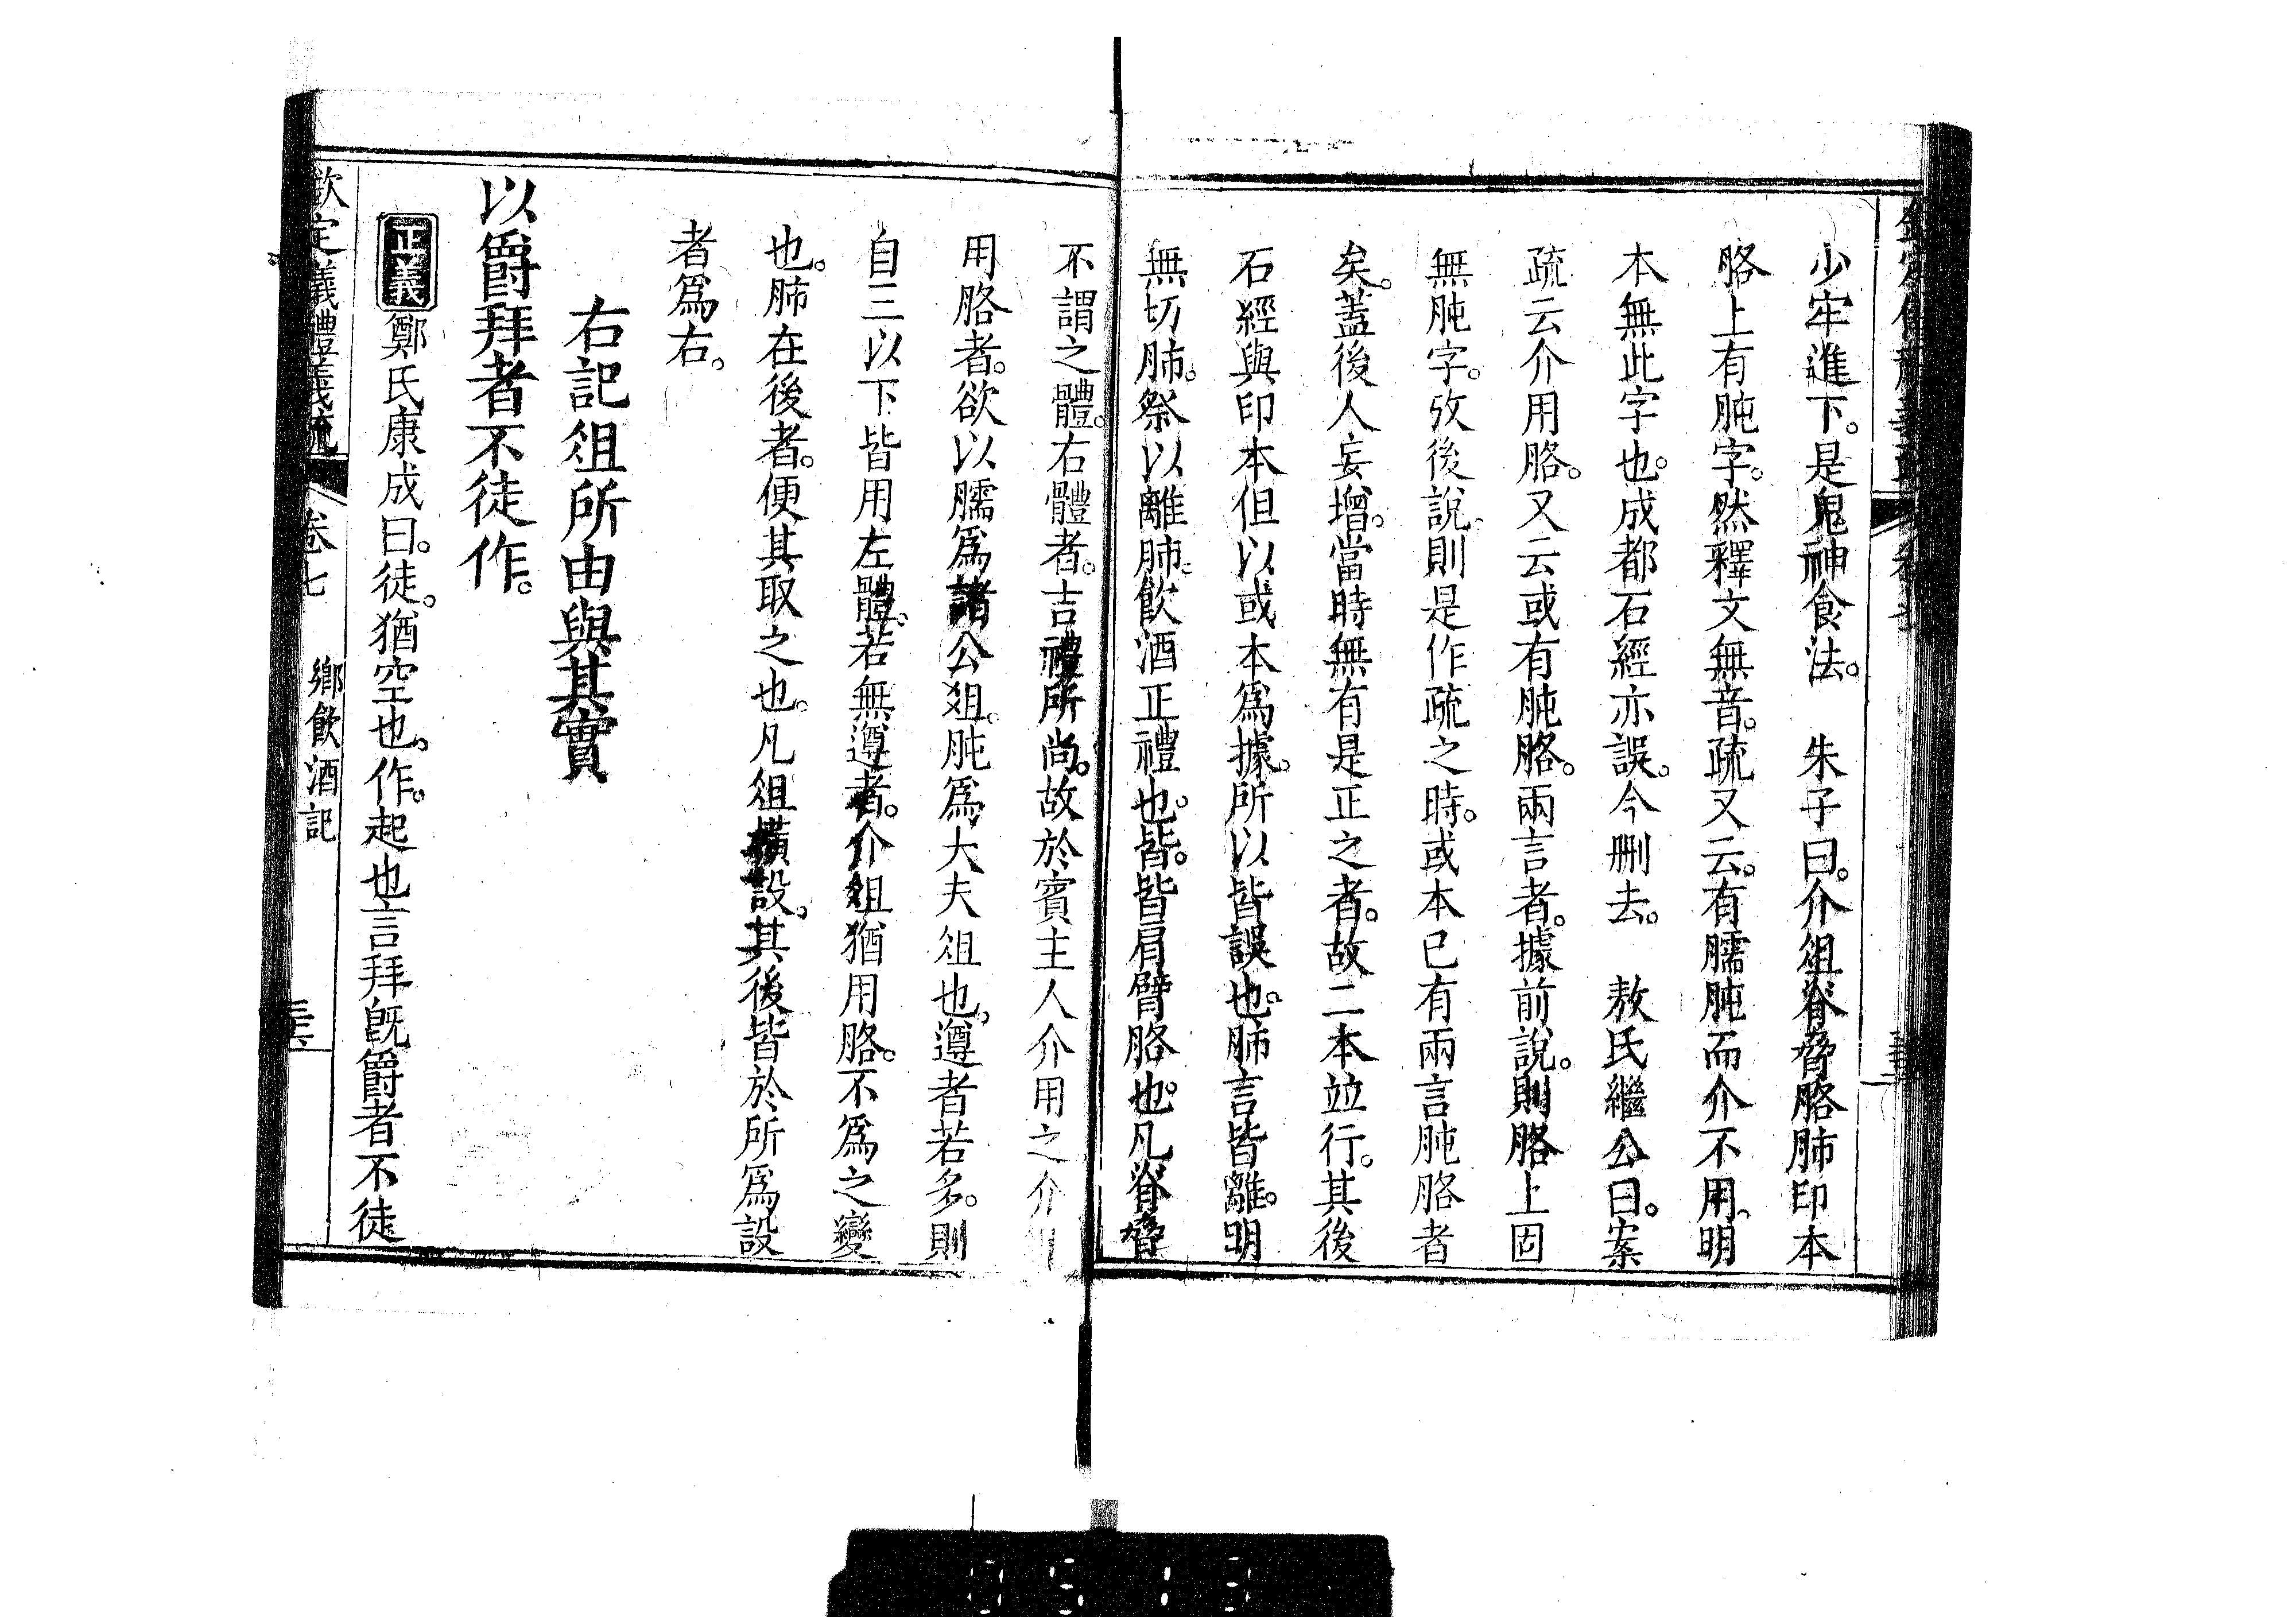 少牢進下。是鬼神食法。　朱子曰。介俎脊脅胳肺印本
胳上有肫字。然釋文無音。疏又云。有臑肫而介不用、明
本無此字也。成都石經亦誤。今刪去。　敖氏繼公曰。案
疏云介用胳。又云或有肫胳。兩言者。據前說。則胳上固
無肫字。攷後說、則是作疏之時。或本已有兩言肫胳者
矣。蓋後人妄增。當時無有是正之者。故二本竝行。其後
石經與印本但以或本為據。所以皆誤也。肺言皆離。明
無切肺。祭以離肺。飲酒正禮也。皆。皆肩臂胳也。凡脊脅
不謂之體。右體者。吉禮所尚。故於賓主人介用之介
用胳者。欲以臑為諸公俎。肫為大夫俎也。遵者若多。則
自三以下皆用左體。若無遵者。介俎猶用胳。不為之變
也。肺在後者。便其取之也。凡俎橫設。其後皆於所為設
者為右。
右記俎所由與其實
以爵拜者不徒作。
正義 鄭氏康成曰。徒。猶空也。作。起也言拜旣爵者不徒
欽定儀禮義疏　卷七　鄉飲酒記